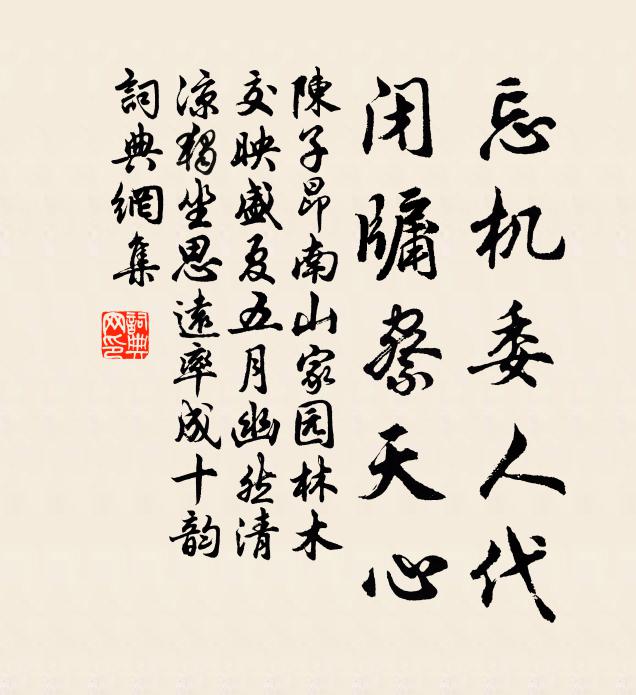 忘机委人代
闭牖察天心
陳子昂南山家园林木
交映盛夏五月幽然清
凉獨坐思遠率成十韵
詞典網集
詞典
网印